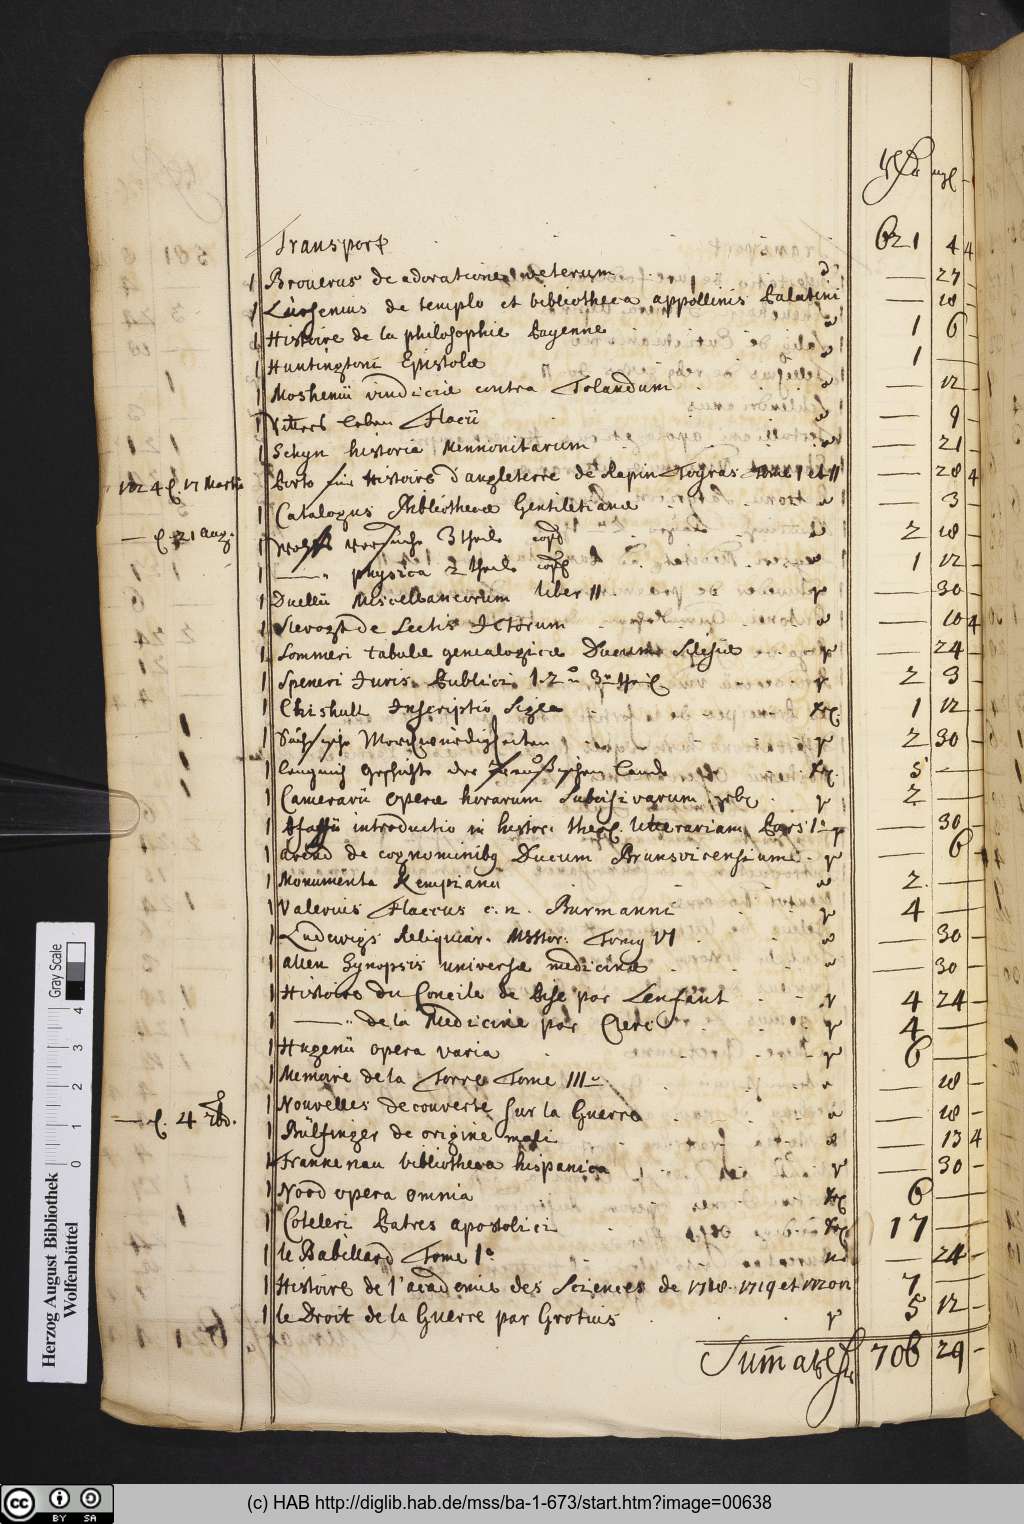 Transport 621 4 4
1 Brouerus de adoratione veterum 27
1 Lürsenius de templo et bibliotheca appollinis Palatini 18
1 Histoire de la philosophie Payenne 1 6
1 Huntingtoni Epistolæ 1
1 Moshemii vindiciæ contra Tolandum 12
1 Ritters leben Flacii 9
1 Schyn historia Mennonitarum 21
1724 17 Martii Porto für Histoire d'angleterre de Rapin Toyras Tome 1 et 11 28 4
1 Catalogus Bibliothecæ Gentilitianæ 3
21 Aug. 1 Wolffs versuche 3 theile 2 18
1 physica 2 theile 1 12
1 Duellii Miscellaneorum liber 11 30
1 de Sectis Ictorum 10 4
1 Sommeri tabulæ genealogicæ Ducum Silesiæ 24
1 Speneri Juris Publici 1. 2 3 2 3
1 Chishull Inscriptio Sigea 1 12
1 Merckwürdigkeiten 2 30
1 geschichte der lande 5
1 Camerarii operæ horarum Subcisivarum 2
1 Pfaffii introductio in histor. theol. litterariam Pars 1 30
1 arend de cognominibus Ducum Brunsvicensium 6
1 Monumenta Kempiana 2
1 Valerius Flaccus c. n. Burmanni 4
1 Ludewigs Reliquiar. Msstor. Tomus VI 30
1 allen Synopsis universæ medicinæ 30
1 Histoire du Concile de Pise par Lenfant 4 24
1 de la Medicine par Clerc 4
1 Hugenii opera varia 6
1 Memoire de la Torre Tome III 18
4 1 Nouvelles decouverte sur la Guerre 18
1 Bülfinger de origine mali 13 4
1 Franckenau bibliotheca hispanica 30
1 Nood opera omnia 6
1 Coteleri Patres apostolici 17
1 le Babillard Tome 1 24
1 Histoire de l'academie des Sciences de 1718. 1719 et 1720 7
1 le Droit de la Guerre par Grotius 5 12
Summa 706 29
Herzog August Bibliothek
Wolfenbüttel
Gray Scale
0 1 2 3 4
BY SA
(c) HAB http://diglib.hab.de/mss/ba-1-673/start.htm?image=00638